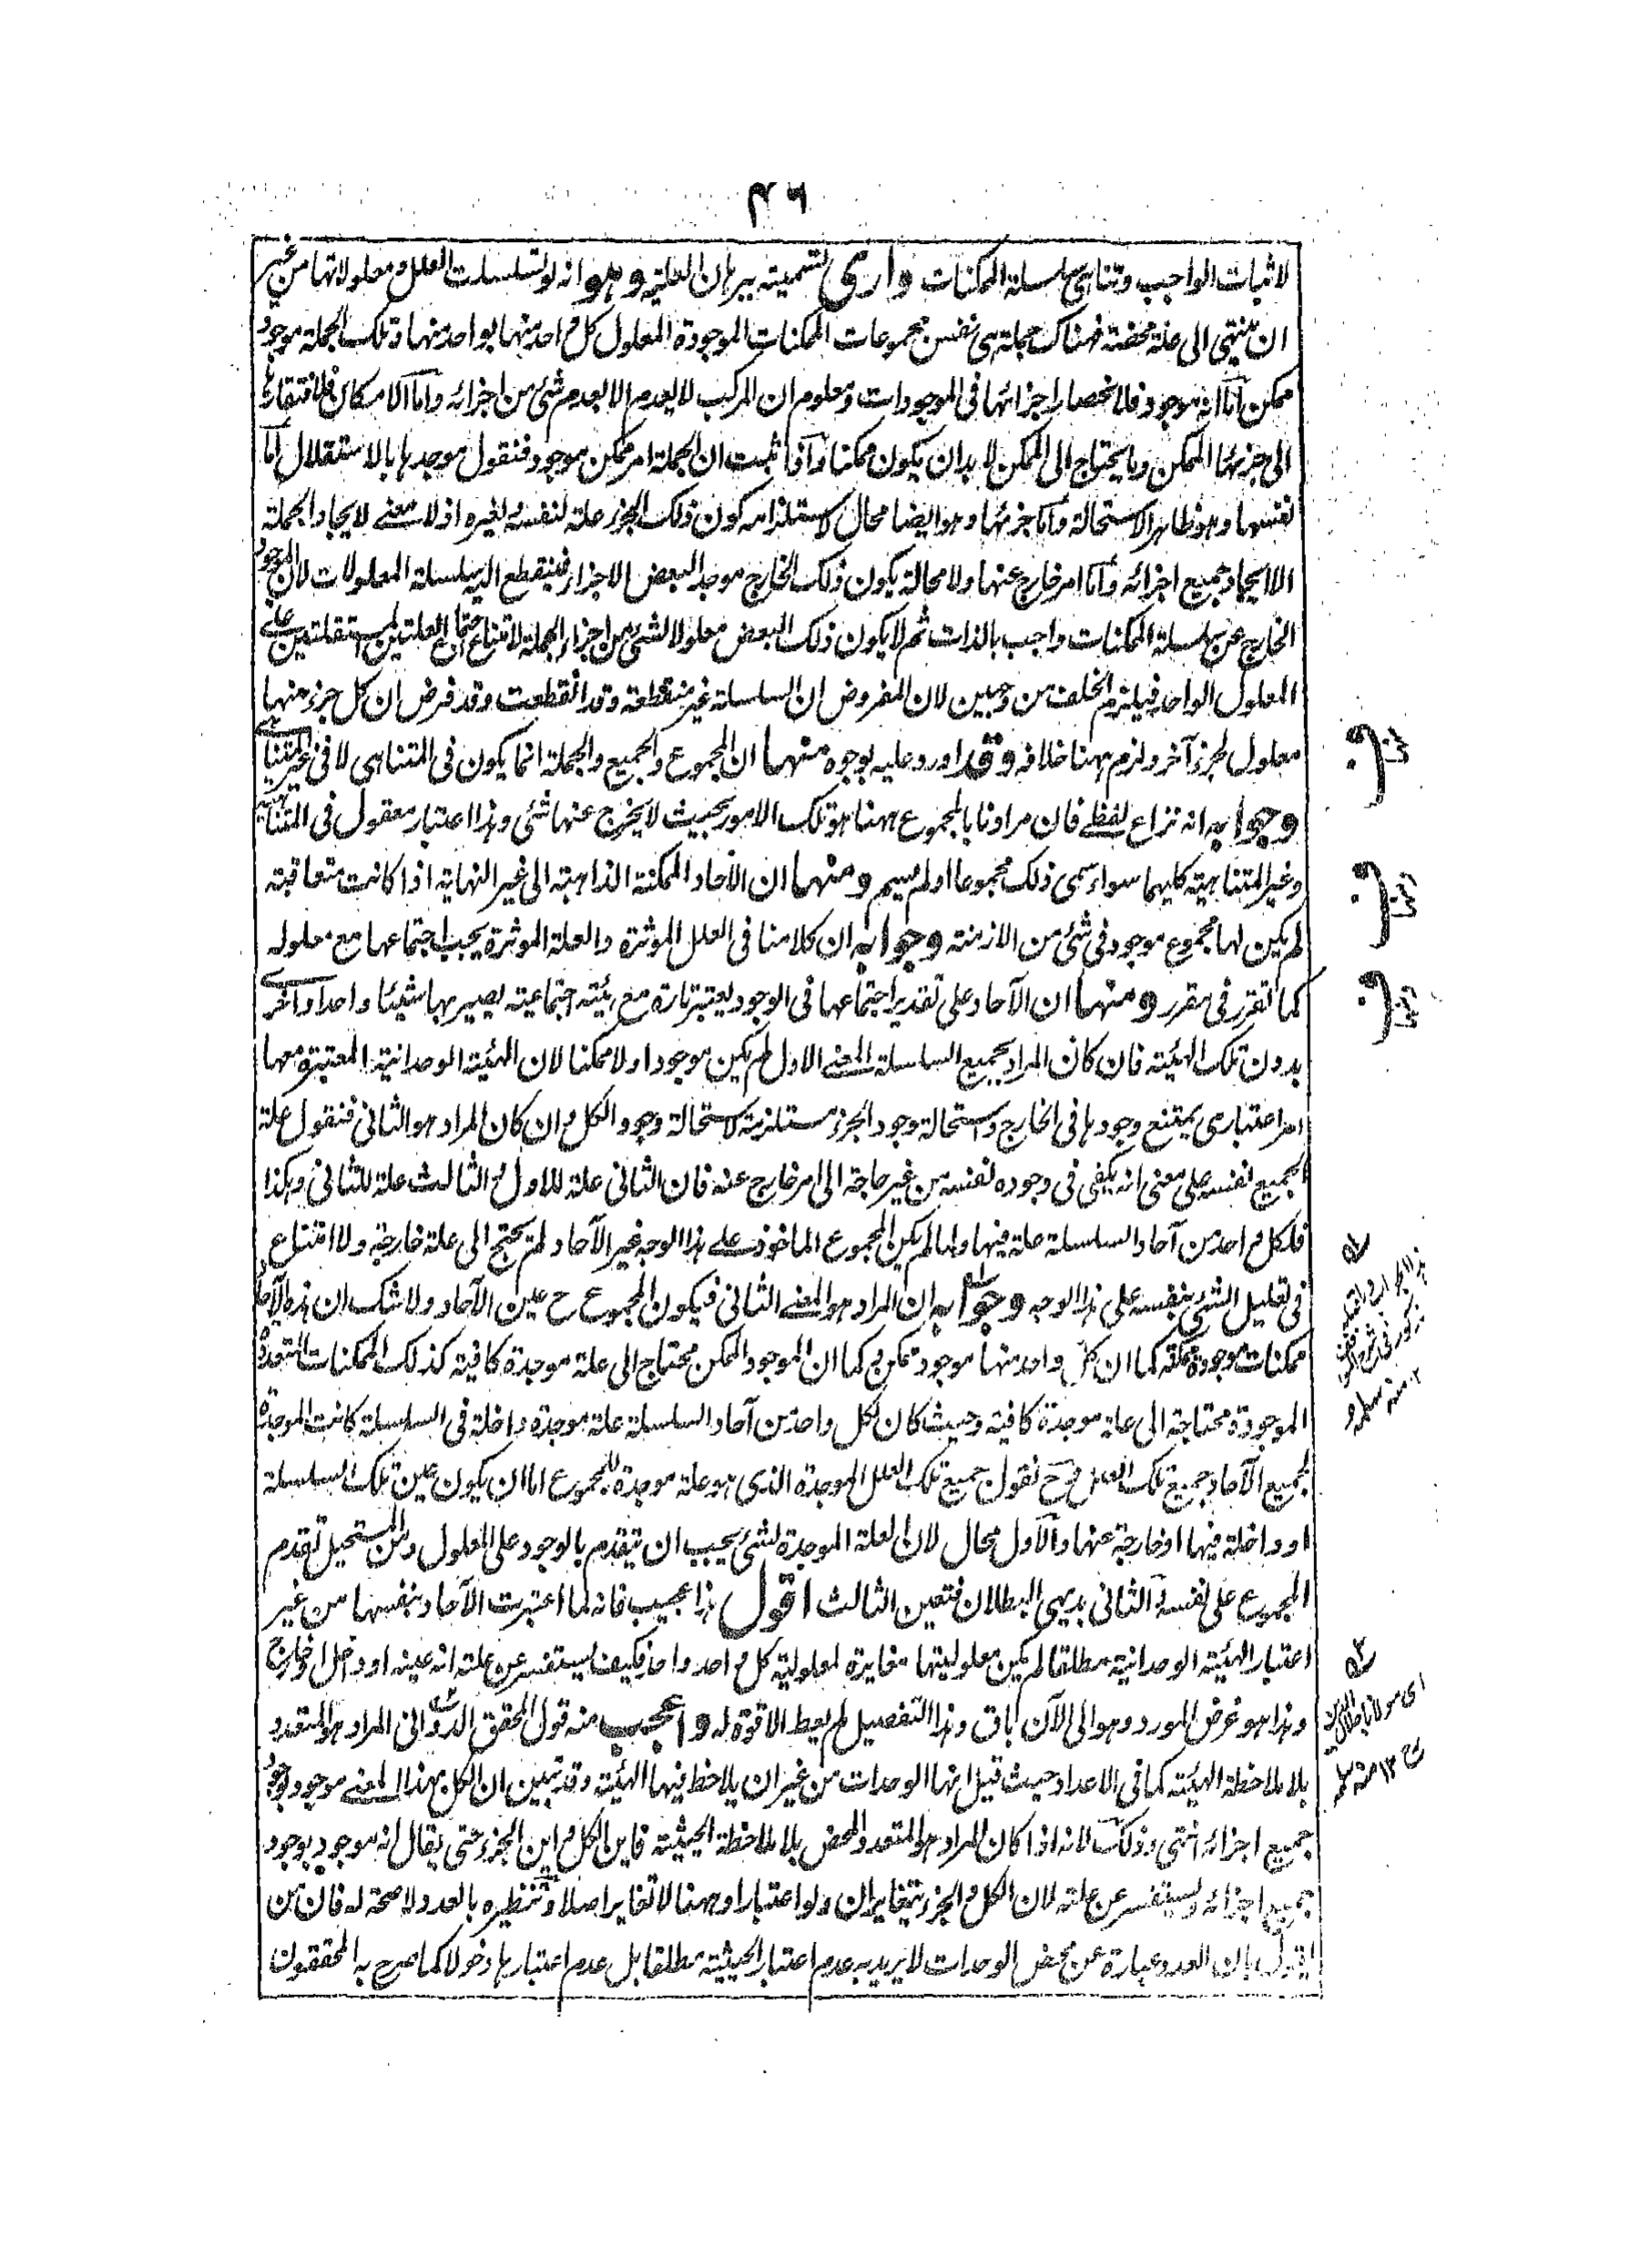 ٤٦
لاثبات الواجب وتناهى سلسلة الممكنات وارى تسميته ببرهان العلية وهو انه لو تسلسلت العلل ومعلولاتها من غير
ان ينتهى الى علة محضة فهناك جملة هى نفس مجموعات الممكنات الموجودة المعلول كل واحد منها بواحد منها وتلك الجملة موجود
ممكن اما انه موجود فلانحصار اجزائها فى الموجودات ومعلوم ان المركب لا يعدم الا بعدم شئ من اجزائه واما الامكان فلافتقارها
الى جزئها الممكن وما يحتاج الى الممكن لا بد ان يكون ممكنا واذا ثبت ان الجملة امر ممكن موجود فنقول موجدها بالاستقلال اما
نفسها وهو ظاهر الاستحالة واما جزئها وهو ايضا محال لاستلزامه كون ذلك الجزء علة لنفسه ولغيره اذ لا معنى لايجاد الجملة
الا ايجاد جميع اجزائه واما امر خارج عنها ولا محالة يكون ذلك الخارج موجد البعض الاجزاء فينقطع اليه سلسلة المعلولات لان الموجود
الخارج عن سلسلة الممكنات واجب بالذات ثم لا يكون ذلك البعض معلولا لشئ من اجزاء الجملة لامتناع اجتماع العلتين المستقلتين على
المعلول الواحد فيلزم الخلف من وجهين لان المفروض ان السلسلة غير منقطعة وقد انقطعت وقد فرض ان كل جزء منها
معلول لجزء آخر ولزم ههنا خلافه وقد اورد عليه بوجوه منها ان المجموع والجميع والجملة انما يكون فى المتناهى لا فى غير المتناهى
وجوابه انه نزاع لفظى فان مرادنا بالمجموع ههنا هو تلك الامور بحيث لا يخرج عنها شئ وهذا اعتبار معقول فى المتناهية
وغير المتناهية كليهما سواء سمى ذلك مجموعا او لم يسم ومنها ان الآحاد الممكنة الذاهبة الى غير النهاية اذا كانت متعاقبة
لم يكن لها مجموع موجود فى شئ من الازمنة وجوابه ان كلامنا فى العلل المؤثرة والعلة المؤثرة يجب اجتماعها مع معلوله
كما تقرر فى مقرره ومنها ان الآحاد على تقدير اجتماعها فى الوجود يعتبر تارة مع هيئته اجتماعية يصير بها شيئا واحدا واخرى
بدون تلك الهيئة فان كان المراد بجميع السلسلة المعنى الاول لم يكن موجودا ولا ممكنا لان الهيئة الوحدانية المعتبرة معها
امر اعتبارى يمتنع وجودها فى الخارج واستحالة وجود الجزء مستلزمة لاستحالة وجود الكل وان كان المراد هو الثانى فنقول علة
الجميع نفسه على معنى انه يكفى فى وجوده لنفسه من غير حاجة الى امر خارج عنه فان الثانى علة للاول والثالث علة للثانى وهكذا
فلكل واحد من آحاد السلسلة علة فيها ولما لم يكن المجموع الماخوذ على هذا الوجه غير الآحاد لم يحتج الى علة خارجة ولا امتناع
فى تعليل الشئ بنفسه على هذا الوجه وجوابه ان المراد هو المعنى الثانى فيكون المجموع ح عين الآحاد ولا شك ان هذه الآحاد
ممكنات موجودة محققة كما ان كل واحد منها موجود ممكن بل كما ان الموجود الممكن محتاج الى علة موجدة كافية كذلك الممكنات المتعددة
الموجودة محتاجة الى علة موجدة كافية وحيث كان لكل واحد من آحاد السلسلة علة موجدة داخلة فى السلسلة كانت الموجدة
لجميع الآحاد جميع تلك العلل وح نقول جميع تلك العلل الموجدة الذى هو علة موجدة للمجموع اما ان يكون عين تلك السلسلة
او داخلة فيها او خارجة عنها والاول محال لان العلة الموجدة لشئ يجب ان يتقدم بالوجود على المعلول ومن المستحيل تقدم
المجموع على نفسه والثانى بديهى البطلان فتعين الثالث اقول هذا عجيب فانه لما اعتبرت الآحاد بنفسها من غير
اعتبار الهيئة الوحدانية مطلقا لم يكن معلوليتها مغايرة لمعلولية كل واحد واحد فكيف يستفسر عن علته انه عينه او داخل او خارج
وهذا هو غرض المورد وهو الى الآن باق وهذا التفصيل لم يعط الا قوة له واعجب منه قول المحقق الدوانى المراد هو المتعدد
بلا ملاحظة الهيئة كما فى الاعداد حيث قيل انها الوحدات من غير ان يلاحظ فيها الهيئة وقد تبين ان الكل بهذا المعنى موجود بوجود
جميع اجزائه انتهى وذلك لانه اذا كان المراد هو المتعدد المحض بلا ملاحظة الحيثية فاين الكل واين الجزء حتى يقال انه موجود بوجود
جميع اجزائه ويستفسر عن علته لان الكل والجزء يتغايران ولو اعتبارا وههنا لا تغاير اصلا وتنظيره بالعدد لا صحة له فان من
يقول بان العدد عبارة عن محض الوحدات لا يريد به عدم اعتبار الحيثية مطلقا بل عدم اعتبارها دخولا كما صرح به المحققون